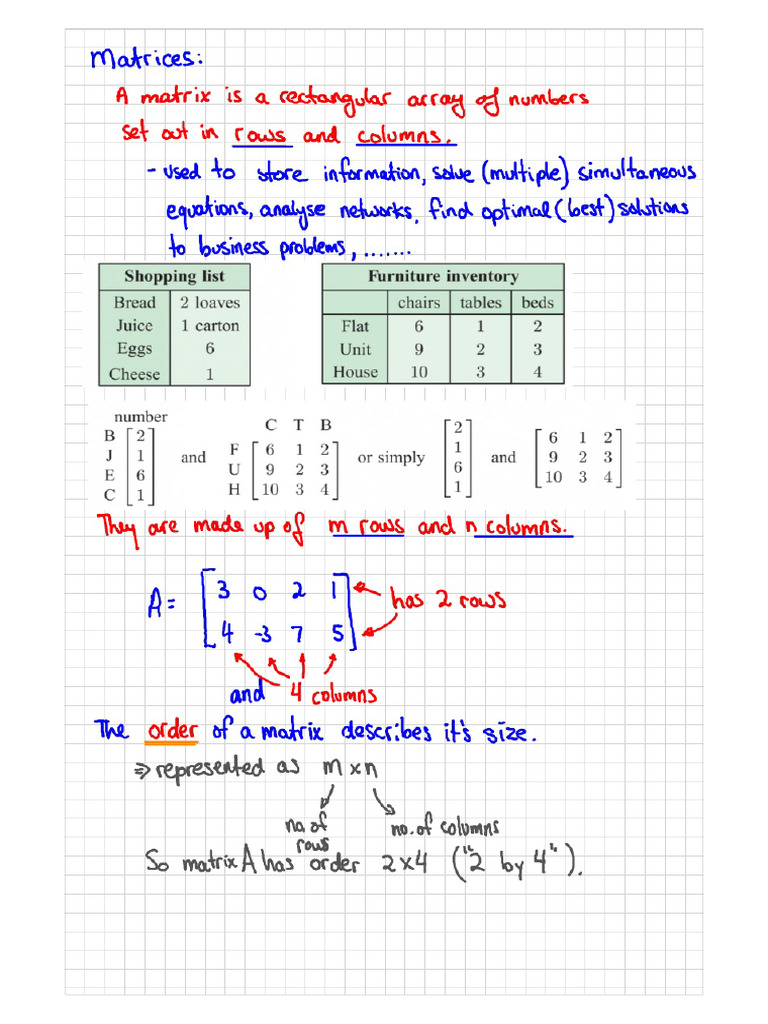 Matrices:
A matrix is a rectangular array of numbers
set out in rows and columns.
- used to store information, solve (multiple) simultaneous
equations, analyse networks, find optimal (best) solutions
to business problems, .......
Shopping list
Bread 2 loaves
Juice 1 carton
Eggs 6
Cheese 1
Furniture inventory
chairs tables beds
Flat 6 1 2
Unit 9 2 3
House 10 3 4
number
B [2]
J [1]
E [6]
C [1]
and
C T B
F [6 1 2]
U [9 2 3]
H [10 3 4]
or simply
[2]
[1]
[6]
[1]
and
[6 1 2]
[9 2 3]
[10 3 4]
They are made up of m rows and n columns.
A = [3 0 2 1]
[4 -3 7 5]
has 2 rows
and 4 columns
The order of a matrix describes it's size.
⇒ represented as m × n
no. of rows
no. of columns
So matrix A has order 2×4 ("2 by 4").